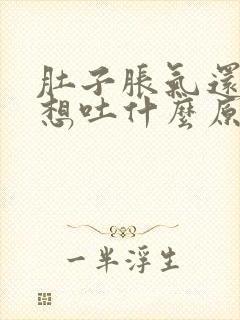 肚子脹氣還
想吐什麼原
一半浮生